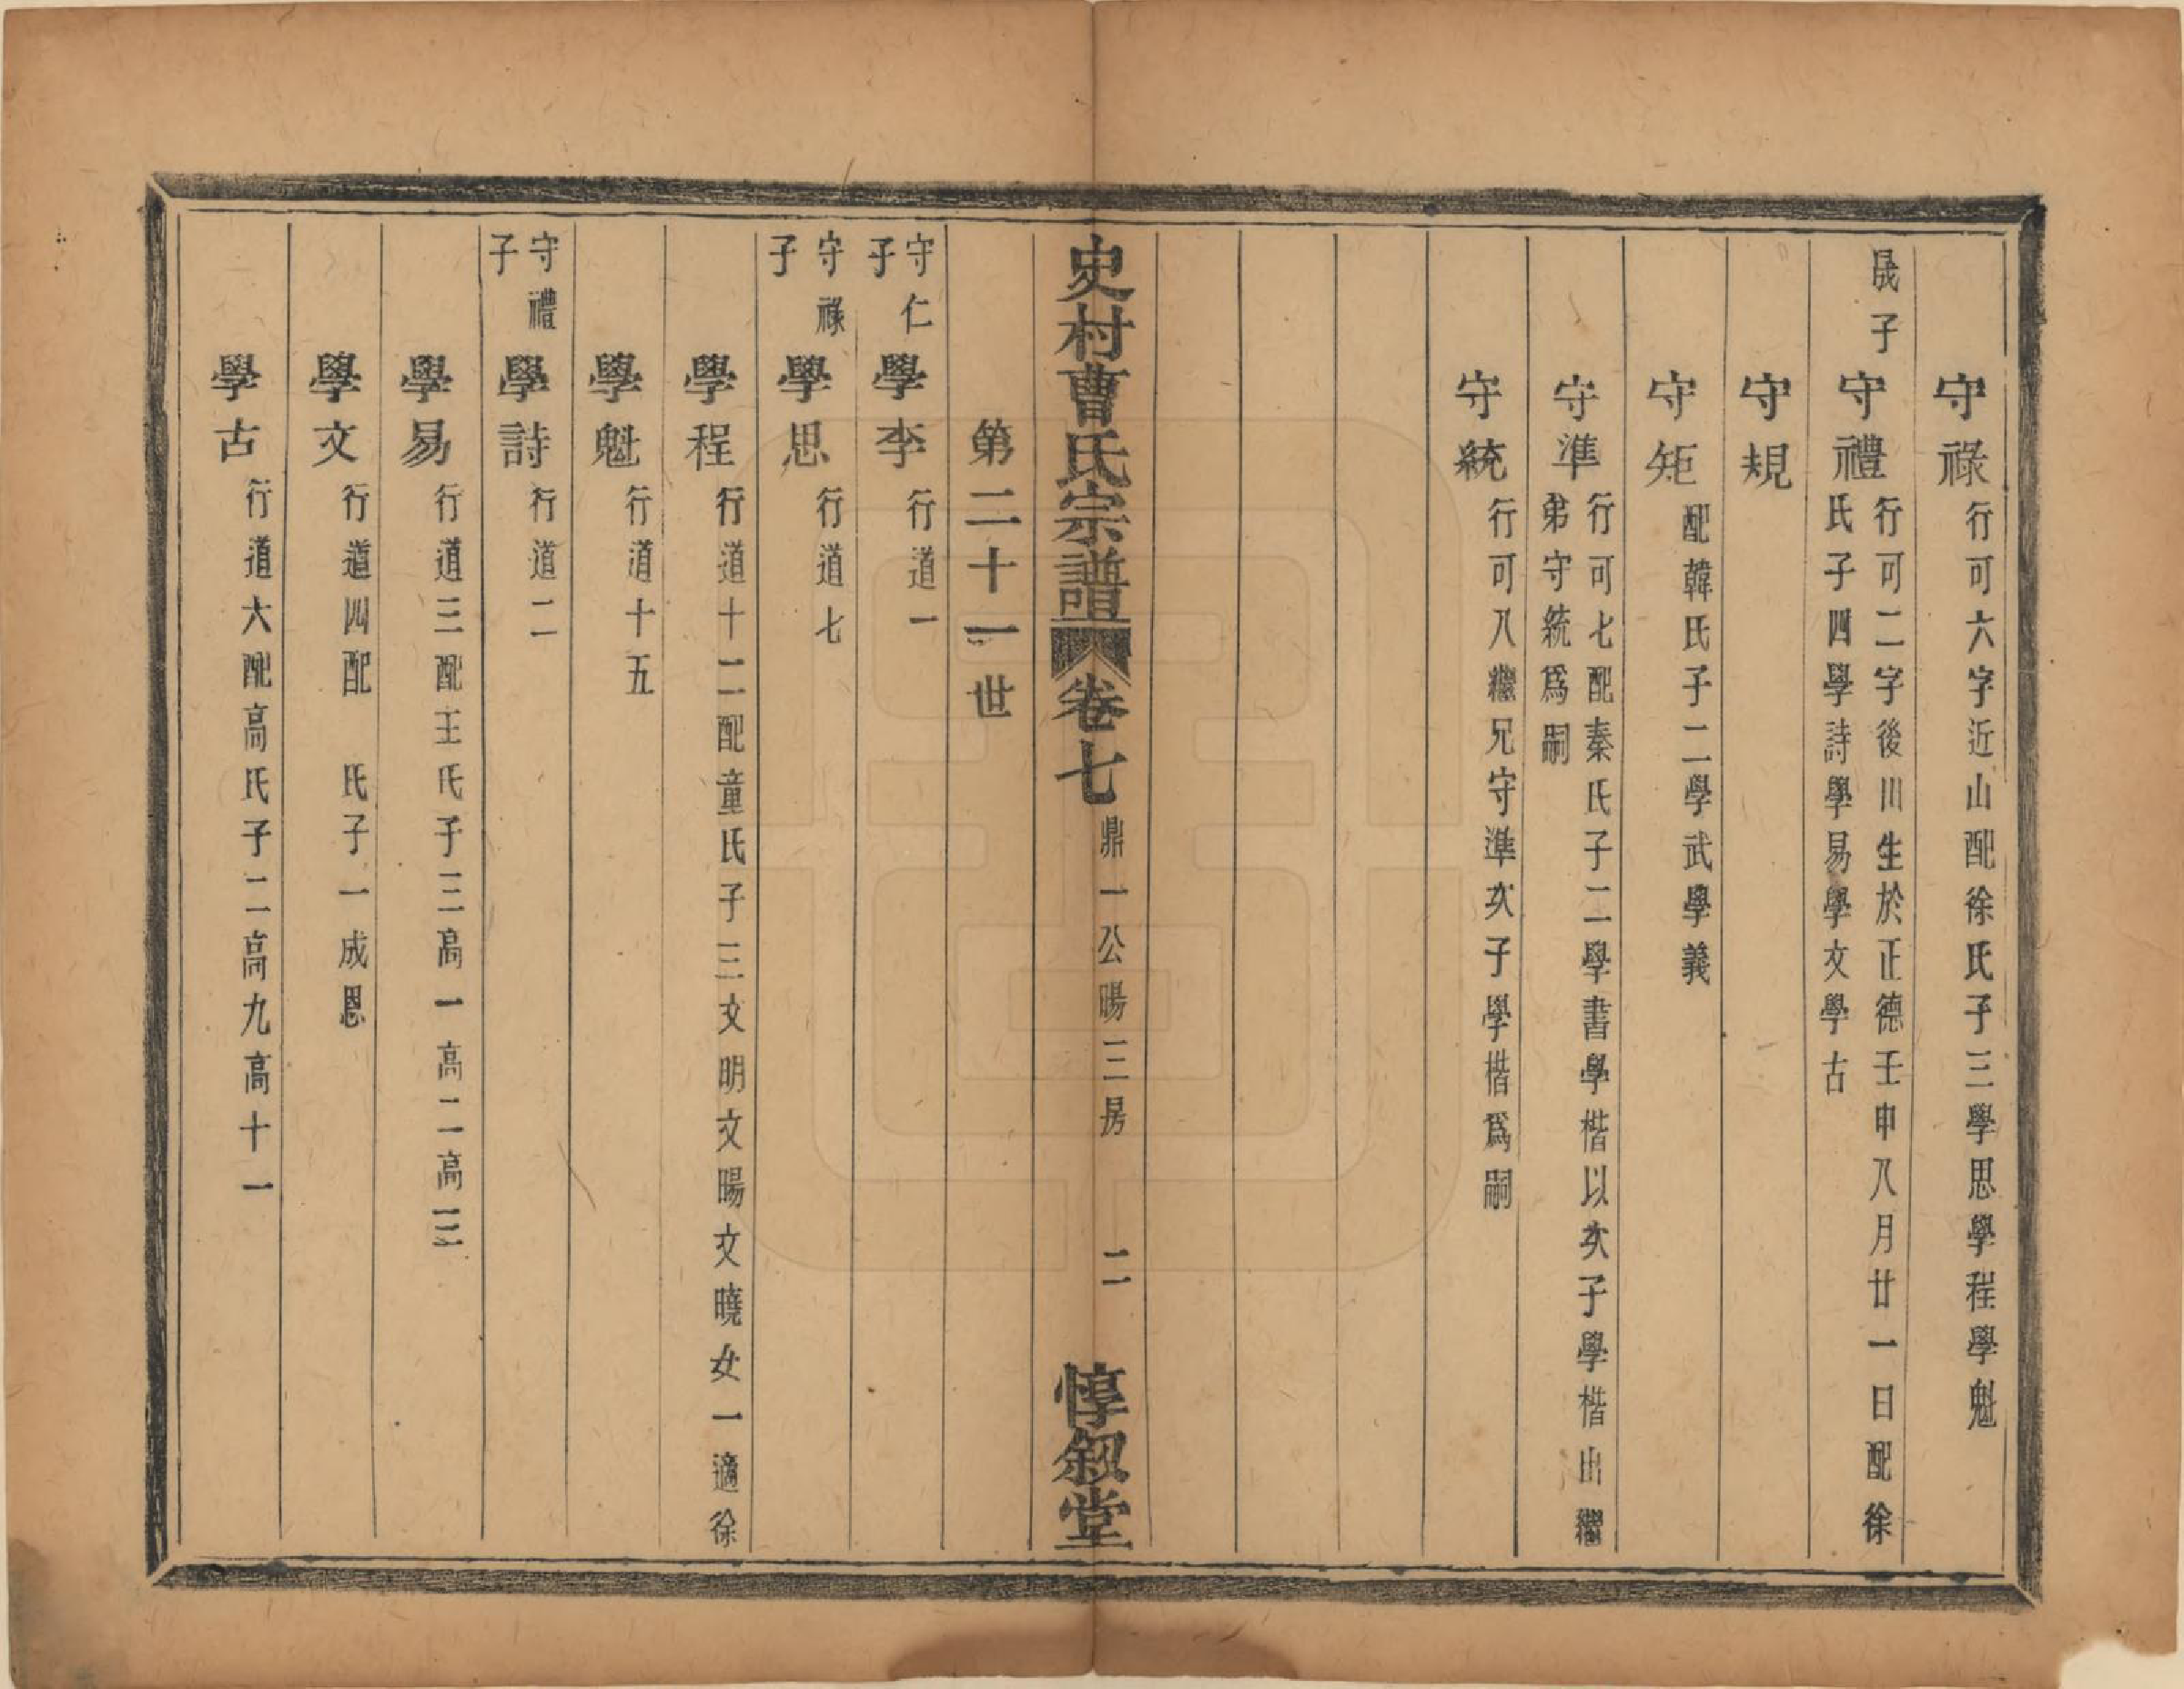 守祿行可六字近山配徐氏子三學思學程學魁
晟子
守禮行可二字後川生於正德壬申八月廿一日配徐
氏子四學詩學易學文學古
守規
守矩配韓氏子二學武學義
守準行可七配秦氏子二學書學楷以次子學楷出繼
弟守統爲嗣
守統行可八繼兄守準次子學楷爲嗣
史村曹氏宗譜 卷七 鼎一公暘三房 二 惇叙堂
第二十一世
守仁
子
學李行道一
守祿
子
學思行道七
學程行道十二配童氏子三文明文暘文曉女一適徐
學魁行道十五
守禮
子
學詩行道二
學易行道三配王氏子三高一高二高三
學文行道四配 氏子一成恩
學古行道六配高氏子二高九高十一